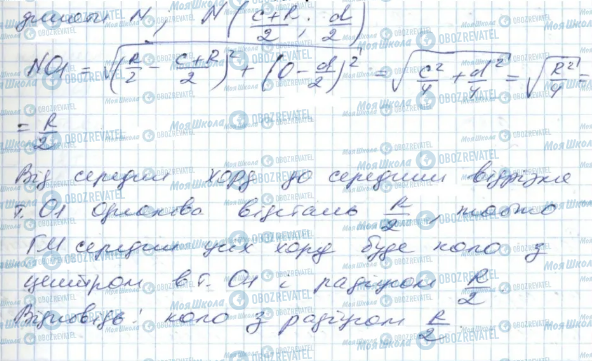 динати N, N((c+R)/2; d/2)
NO1 = √((R/2 - (c+R)/2)² + (0 - d/2)²) = √(c²/4 + d²/4) = √(R²/4) =
= R/2
Від середин хорд до середини відрізка
т. O1 однакова відстань R/2, тобто
ГМ середин цих хорд буде коло з
центром в т. O1 і радіусом R/2
Відповідь: коло з радіусом R/2.